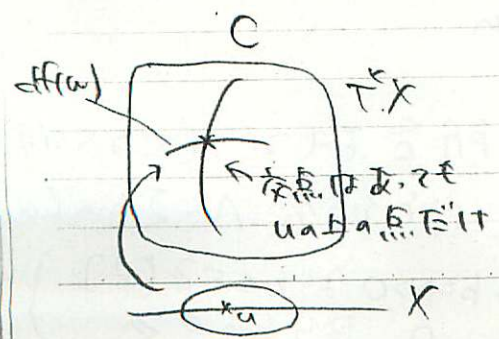 C
df(u)
T*X
交点はあっても
uの上の点だけ
X
u